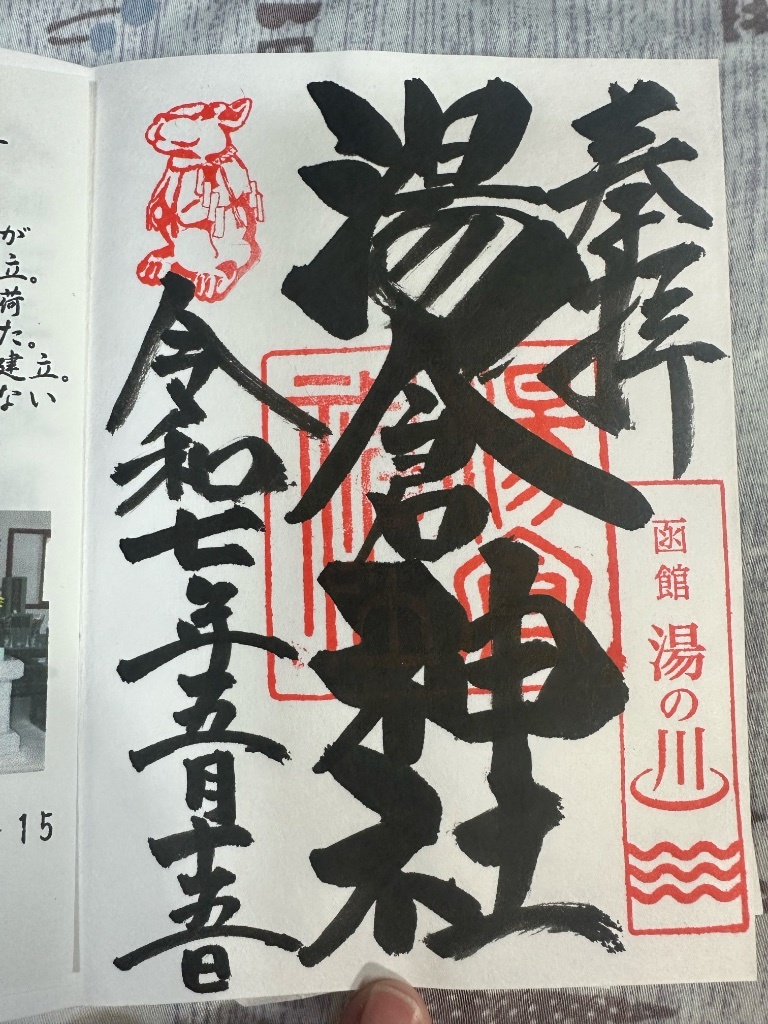 奉拝
函館
湯の川
湯倉神社
湯倉神社
令和七年五月十五日
が
立。
荷
た。
建立。
ない
15